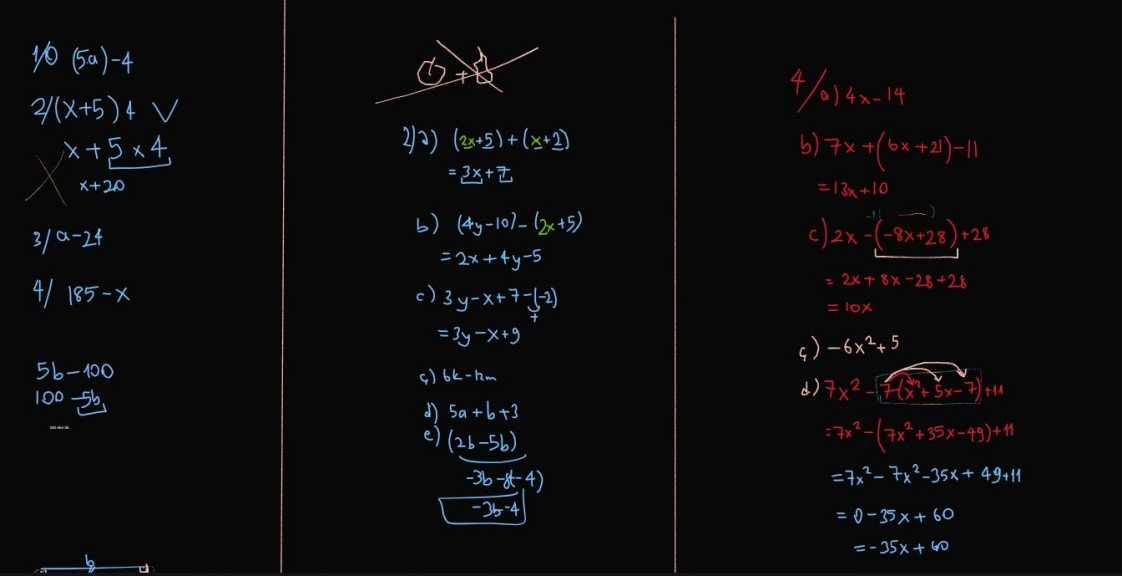 1/ (5a)-4
2/(x+5)4 V
x+5x4
x+20
3/ a-24
4/ 185-x
5b-100
100-5b
b
2/a) (2x+5)+(x+2)
=3x+7
b) (4y-10)-(2x+5)
=2x+4y-5
c) 3y-x+7-(-2)
+
=3y-x+9
ç)
d) 5a+b+3
e) (2b-5b)
-3b-4
4/a) 4x-14
b) 7x+(6x+21)-11
=13x+10
c) 2x-(-8x+28)+28
= 2x+8x-28+28
= 10x
ç) -6x²+5
d) 7x²-7(x²+5x-7)+11
=7x²-(7x²+35x-49)+11
=7x²-7x²-35x+49+11
= 0-35x+60
=-35x+60